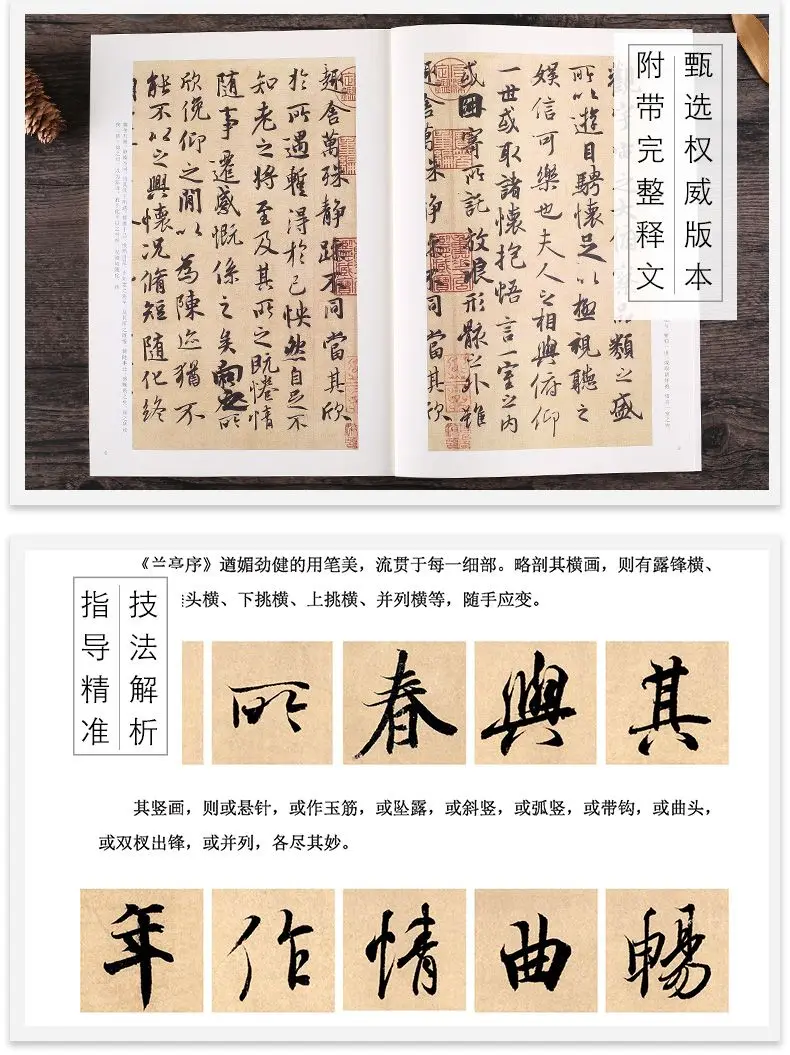 甄选权威版本
附带完整释文
類之盛
所以遊目騁懷足以極視聽之
娛信可樂也夫人之相與俯仰
一世或取諸懷抱悟言一室之內
或因寄所託放浪形骸之外雖
趣舍萬殊靜躁不同當其欣
趣舍萬殊靜躁不同當其欣
於所遇暫得於己怏然自足不
知老之將至及其所之既惓情
隨事遷感慨係之矣向之所
欣俛仰之間以為陳迹猶不
能不以之興懷況脩短隨化終
技法解析
指导精准
《兰亭序》遒媚劲健的用笔美，流贯于每一细部。略剖其横画，则有露锋横、
头横、下挑横、上挑横、并列横等，随手应变。
所 春 興 其
其竖画，则或悬针，或作玉筋，或坠露，或斜竖，或弧竖，或带钩，或曲头，
或双杈出锋，或并列，各尽其妙。
年 作 情 曲 暢